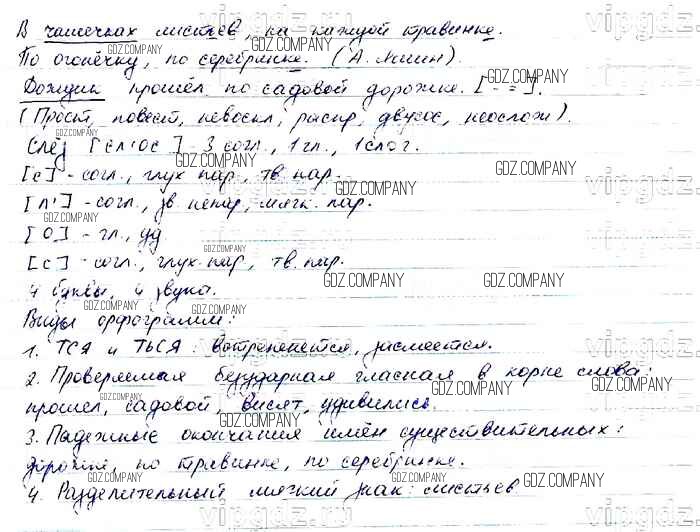 В чашечках листьев, на каждой травинке.
По огонёчку, по серебринке. (А. Мишин).
Дождик прошёл по садовой дорожке. [- =].
(Прост, повест, невоскл, распр, двусос, неослож).
След [сл'ос] - 3 согл., 1 гл., 1 слог.
[с] - согл., глух. пар, тв. пар.
[л'] - согл., зв. непар, мягк. пар.
[О] - гл., уд
[с] - согл., глух. пар, тв. пар.
4 буквы, 4 звука.
Виды орфограмм:
1. ТСЯ и ТЬСЯ: встрепенётся, засмеется.
2. Проверяемая безударная гласная в корне слова:
прошел, садовой, висят, удивились.
3. Падежные окончания имён существительных:
дорожке, по травинке, по серебринке.
4. Разделительный мягкий знак: листьев
GDZ.COMPANY
vipgdz.ru